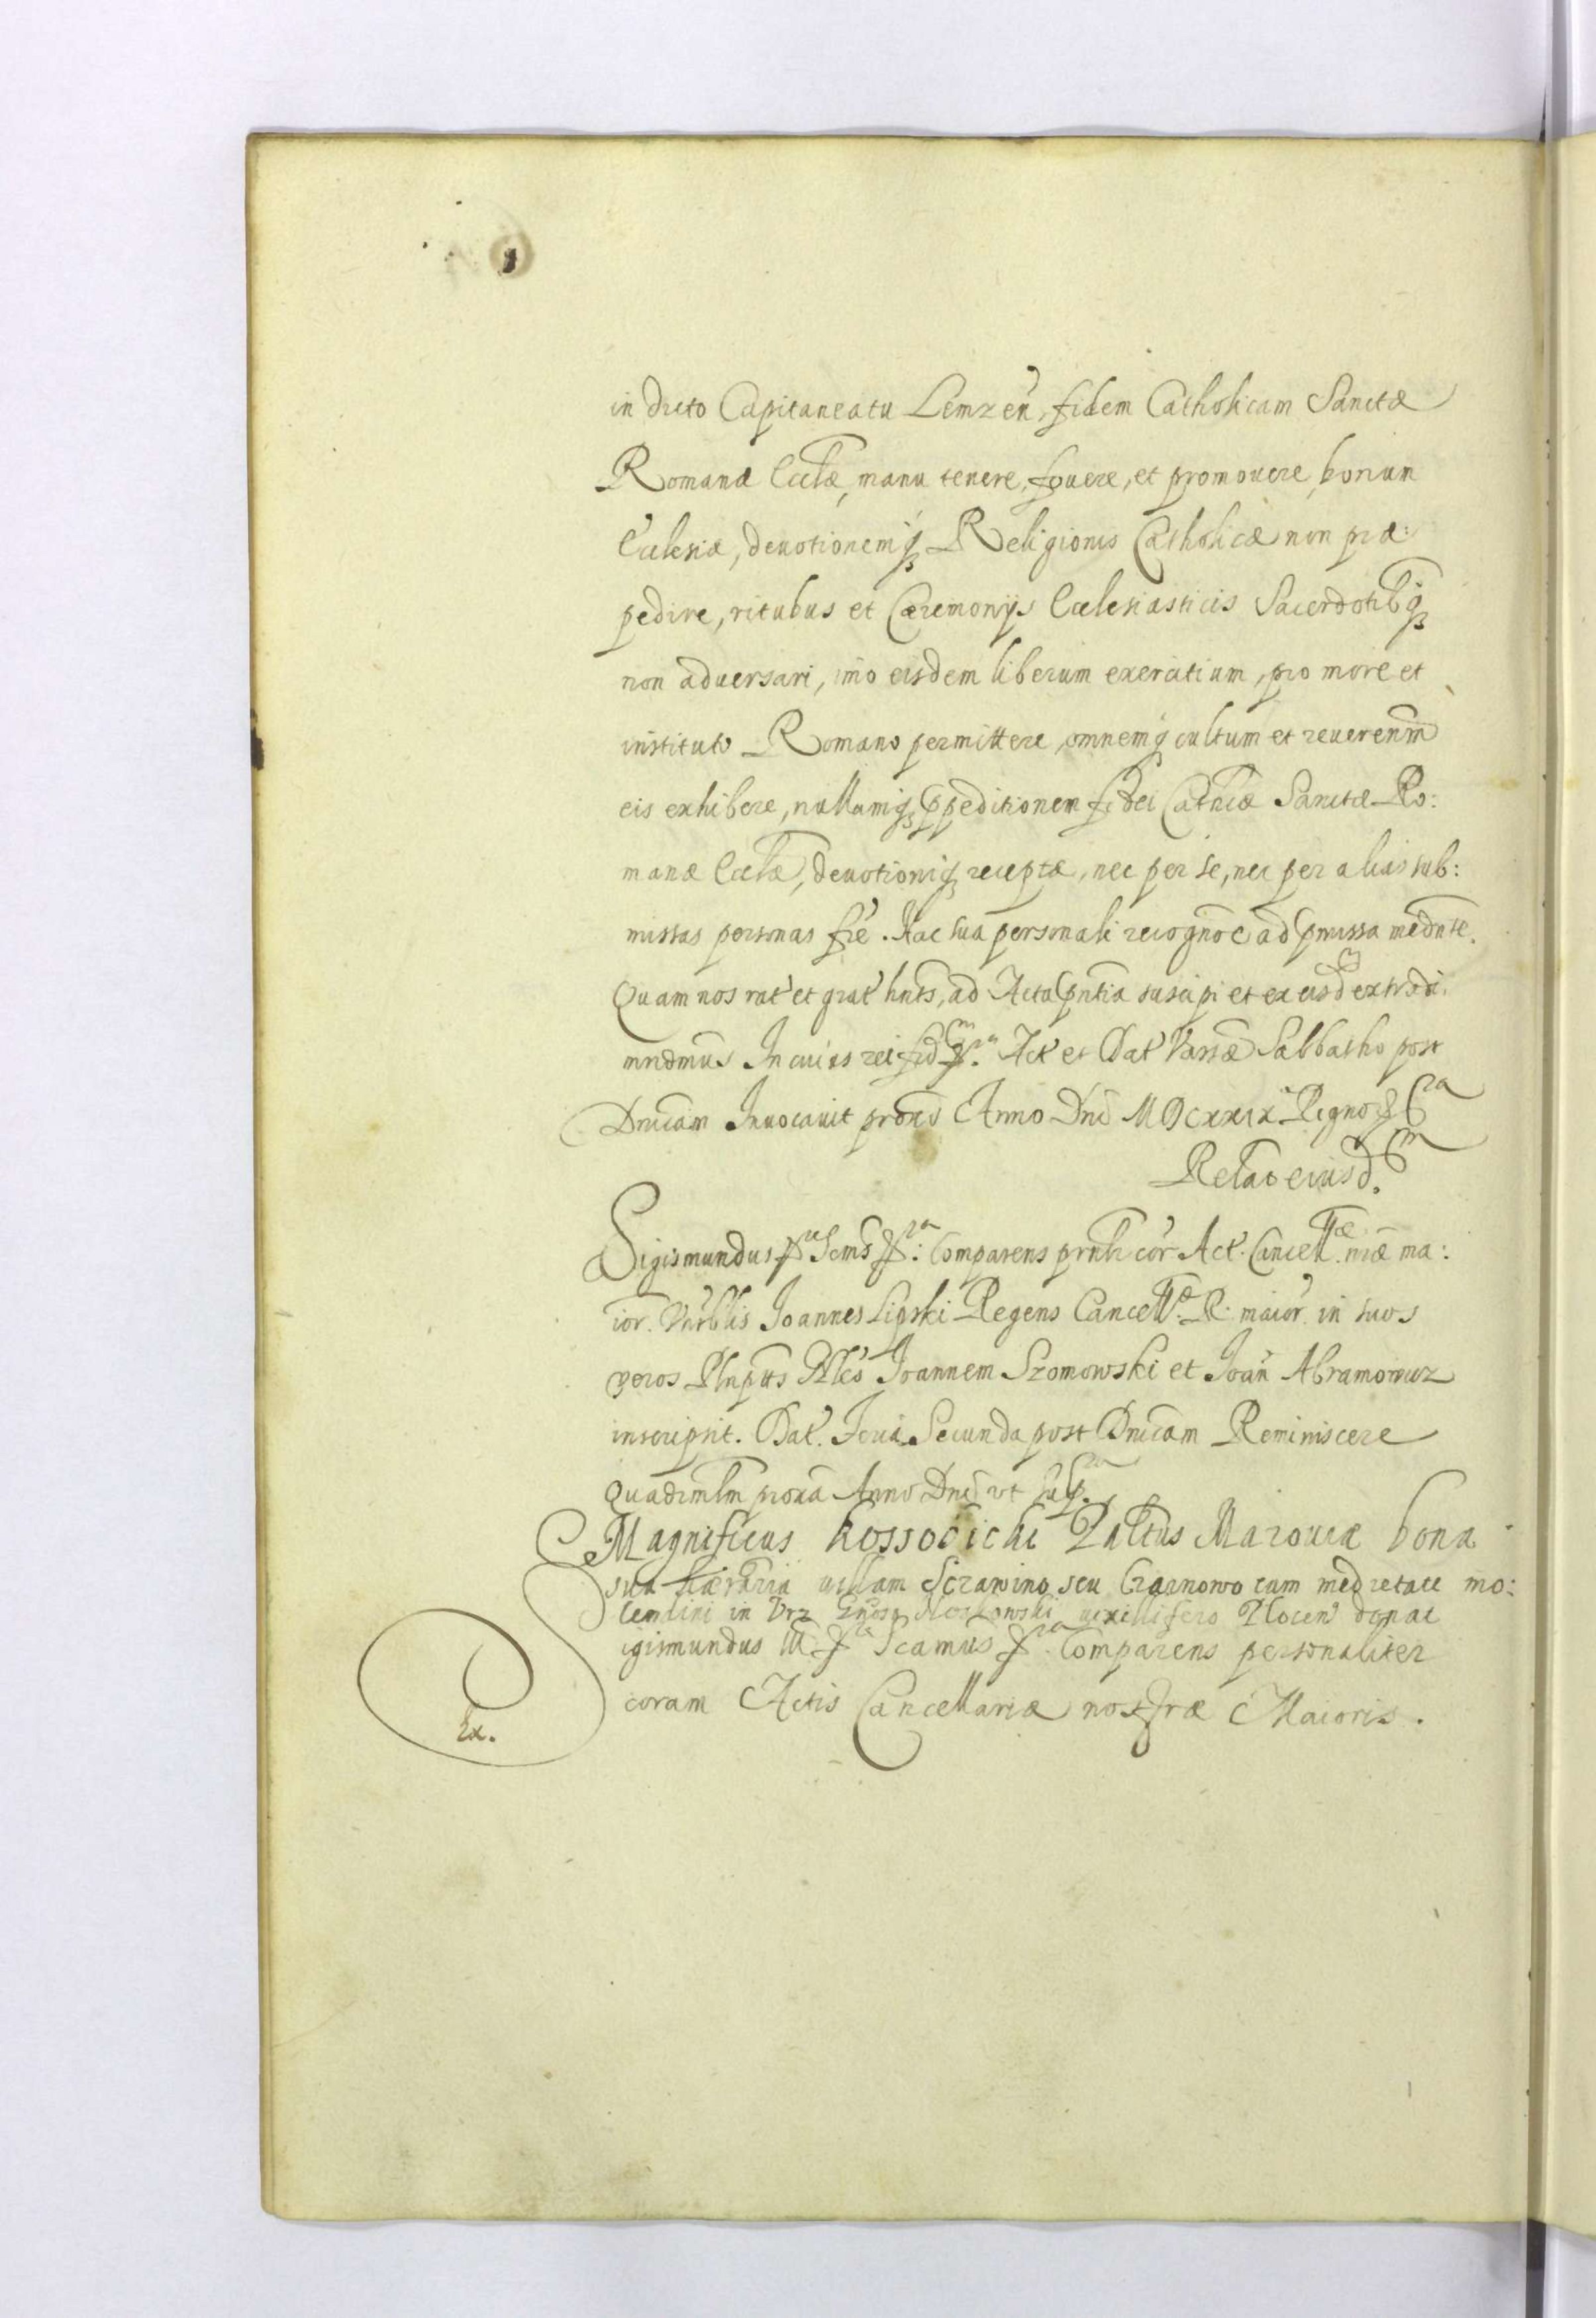 in dicto Capitaneatu Lemzen, fidem Catholicam Sanctæ
Romanæ Eccłæ, manu tenere, fouere, et promouere, bonum
Ecclesiæ, deuotionemq Religionis Catholicæ non præ:
pedire, ritubus et Cæremonijs Ecclesiasticis Sacerdotibq
non aduersari, imo eisdem liberum exercitium, pro more et
instituto Romano permittere, omnemq cultum et reuerenm
eis exhibere, nullamq ppeditionem fidei Cathcæ Sanctæ Ro:
manæ Eccłæ, deuotioniq receptæ, nec per se, nec per alias sub:
missas personas fre. Hac sua personali recognoe ad pmissa mednte.
Quam nos rat et grat hnts, ad Acta pntia suscipi et ex eisd extradi.
mndmus In cuius rei fid Act et Dat Varsæ Sabbatho post
Dnicam Inuocauit proxs Anno Dni MDCXXIX Regnor
Relao eiusd.
Sigismundus comparens prnlr cor Act. Cancell. nræ ma:
ior. Joannes Lipski Regens Cancell. R. maior. in suos
veros Joannem Szomowski et Joan Abramowicz
inscripsit. Dat. Feria Secunda post Dnicam Reminiscere
Quadrmlm proxa Anno Dni vt sup.
Magnificus Kossobicki Palt​us Mazouiæ bona
sua villam Scrawino seu Czarnowo cum medietate mo:
lendini in vexillifero Plocen donat
Sigismundus III Scamus Comparens personaliter
coram Actis Cancellariæ nostræ Maioris.
Ex.